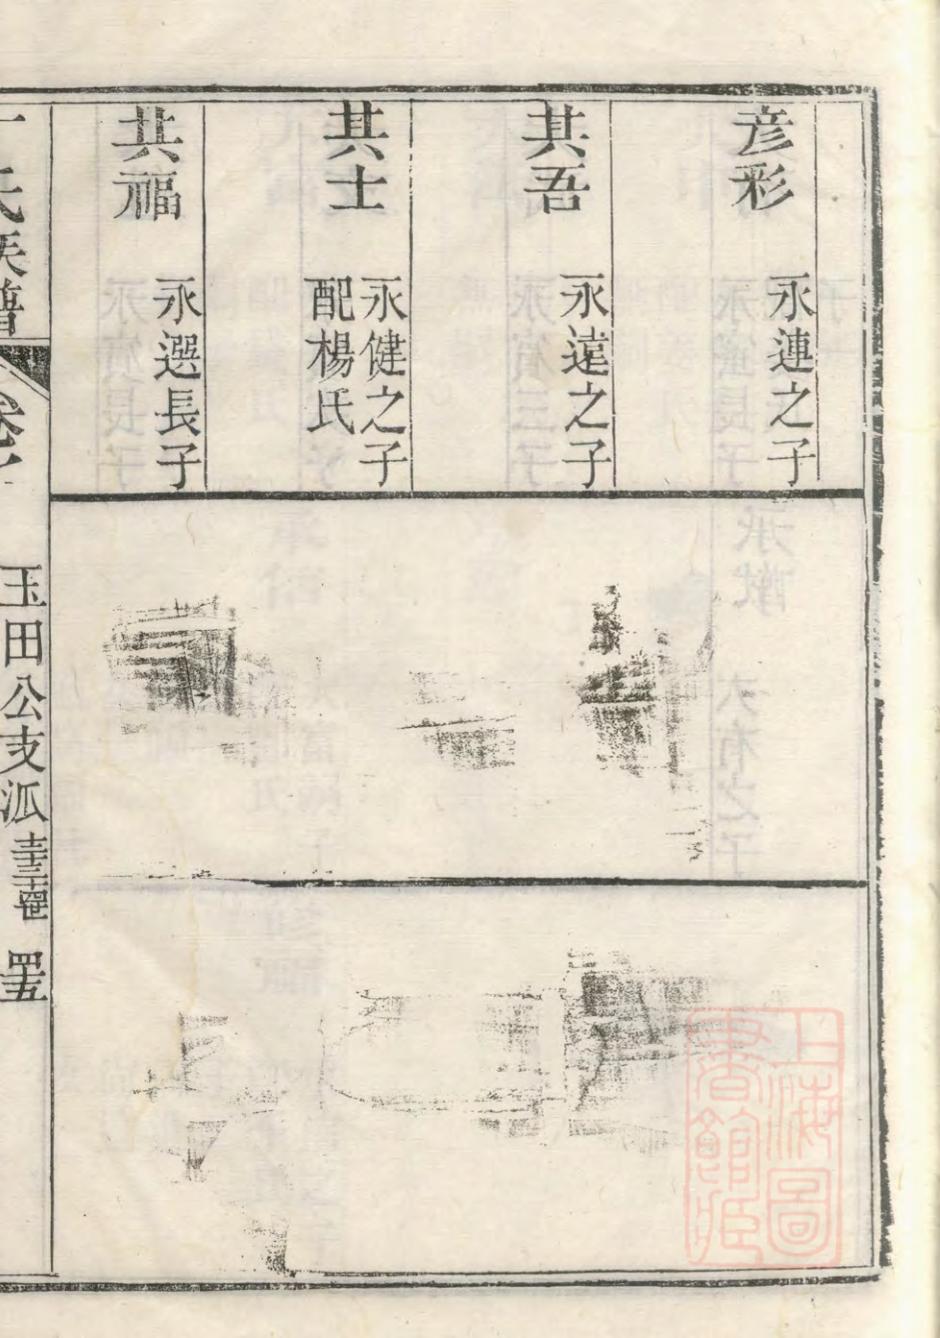 彦彩
永連之子
其吾
永遠之子
其士
永健之子
配楊氏
共福
永選長子
氏族譜
卷
玉田公支派
上海圖書館藏